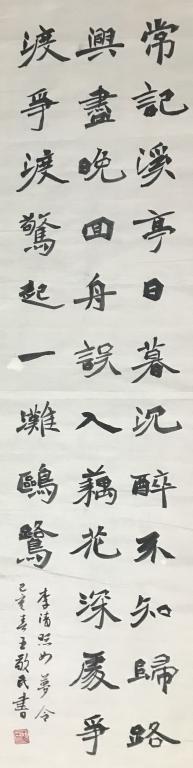 常記溪亭日暮沉醉不知歸路
興盡晚回舟誤入藕花深處爭
渡爭渡驚起一灘鷗鷺
李清照如夢令
己亥春王敬民書